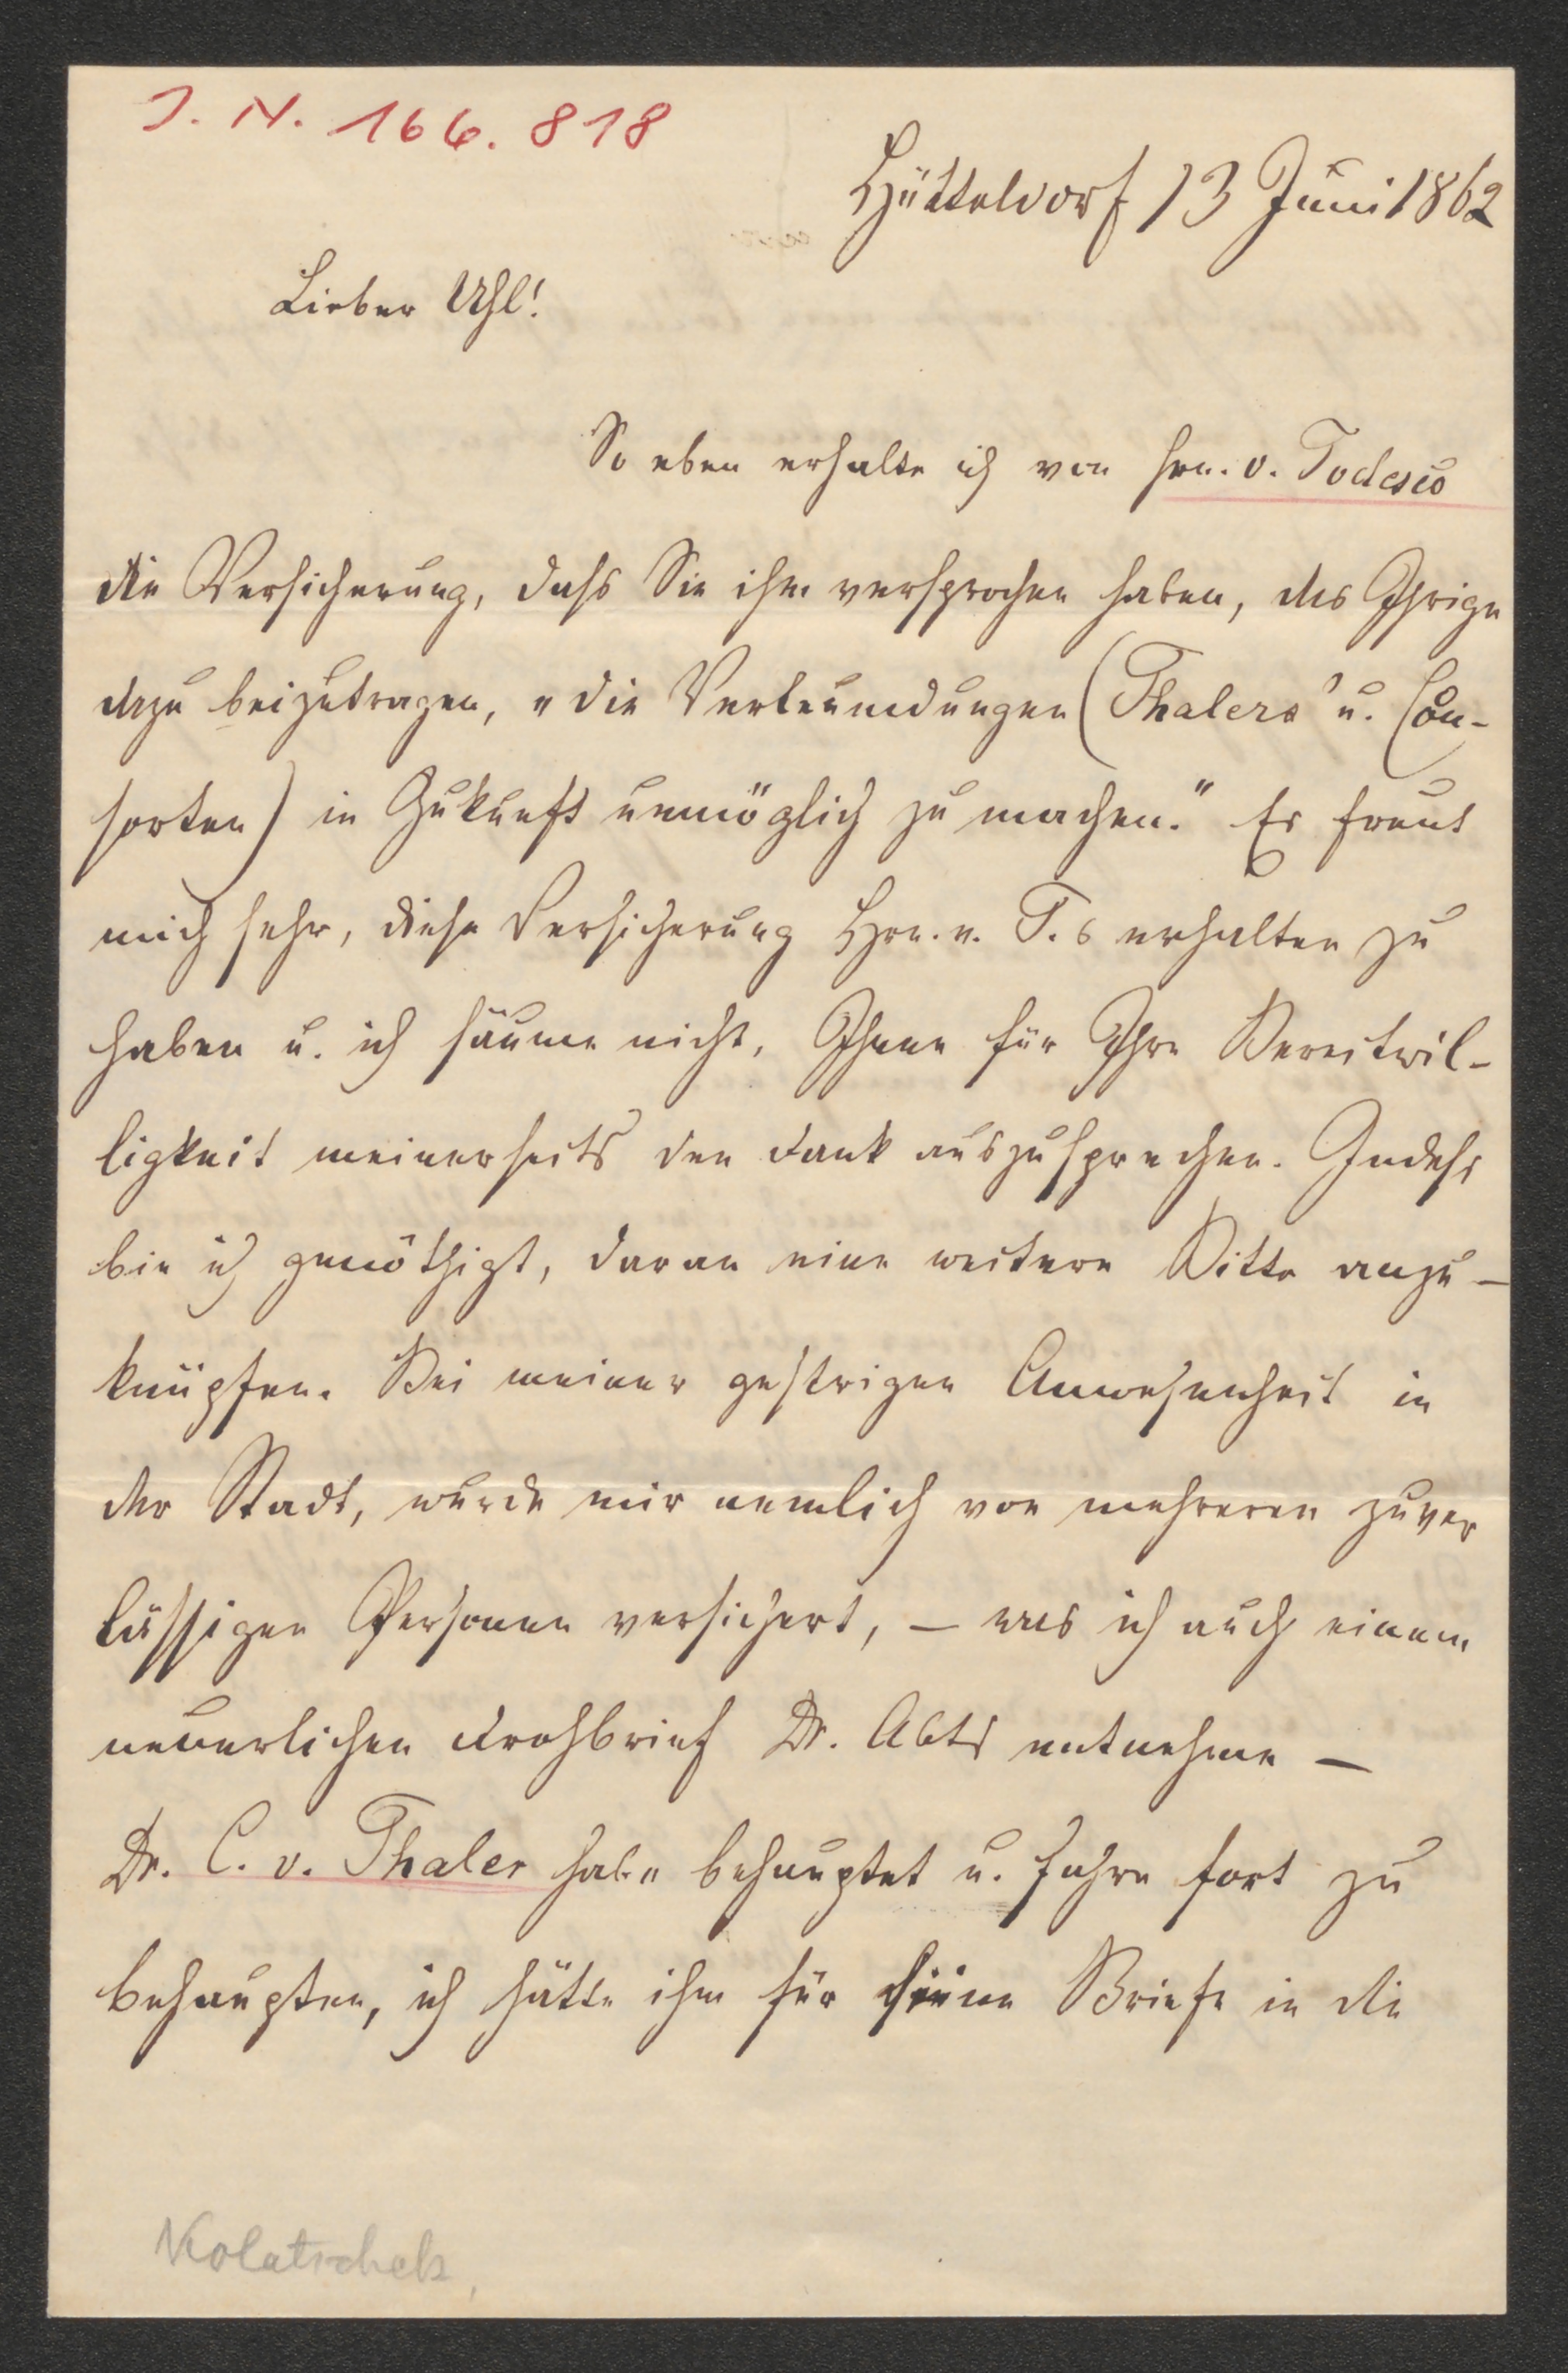 I. N. 166.818
Hütteldorf 13 Juni 1862
Lieber Uhl!
So eben erhalte ich von Hrn. v. Todesco
die Versicherung, dass Sie ihm versprochen haben, das Ihrige
dazu beizutragen, „die Verleumdungen (Thalers u. Con-
sorten) in Zukunft unmöglich zu machen." Es freut
mich sehr, diese Versicherung Hrn. v. T.s erhalten zu
haben u. ich säume nicht, Ihnen für Ihre Bereitwil-
ligkeit meinerseits den Dank auszusprechen. Indess
bin ich genöthigt, daran eine weitere Bitte anzu-
knüpfen. Bei meiner gestrigen Anwesenheit in
der Stadt, wurde mir nemlich von mehreren zuver
lässigen Personen versichert, – was ich auch einem
neuerlichen Drohbrief Dr. Abts entnehme –
Dr. C. v. Thaler habe behauptet u. fahre fort zu
behaupten, ich hätte ihm für seine Briefe in die
Kolatschek